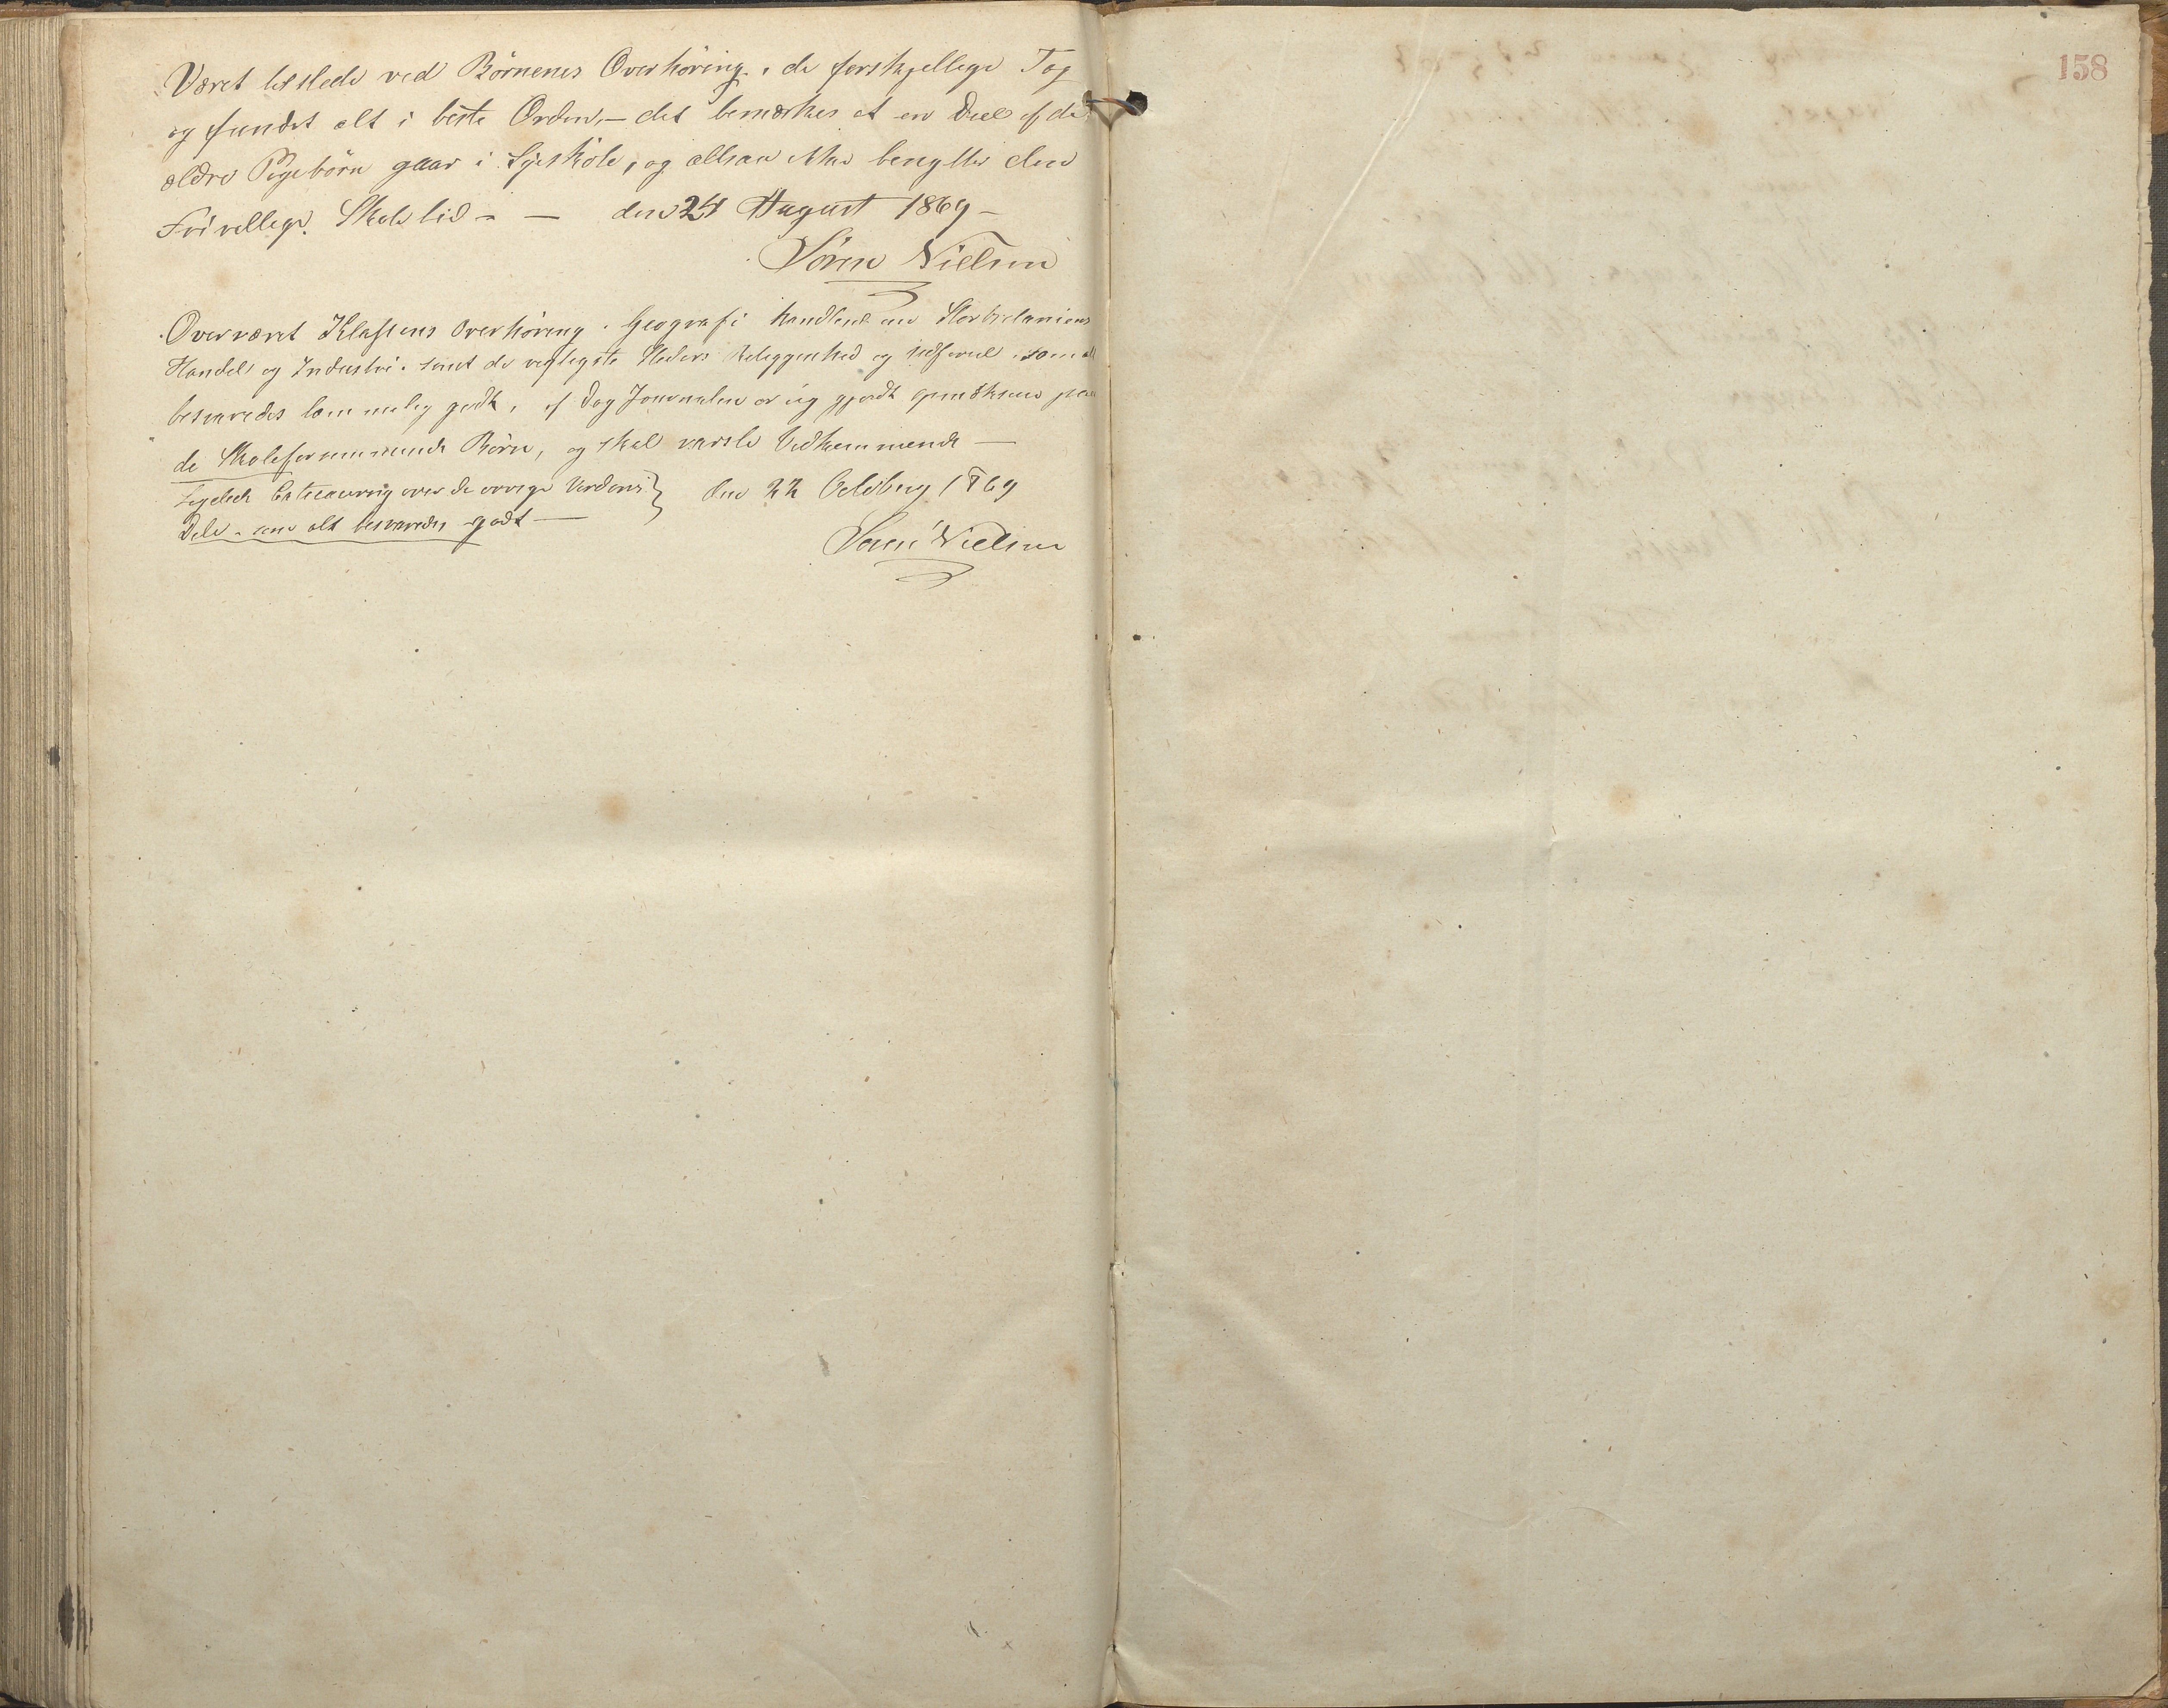 Været tilstede ved Börnenes Overhöring i de forskjellige Fag
og fundet alt i beste Orden, — det bemærkes at en Deel af de
ældre Pigebörn gaar i Syeskole, og altsaa ikke benytter den
Frivillige Skoletid — — den 24 August 1869 —
Sören Nielsen
Overværet Klassens Overhöring i Geografi handlend om Storbritaniens
Handel og Industri samt de vigtigste Steders Beliggenhed og som alt
besvaredes temmelig godt, af Dag Journalen er jeg gjordt opmærksom paa
de Skoleforsömmende Börn, og skal varsle Vedkommende —
Ligeledes Catisering over de övrige Verdens } den 22 Octobr 1869
Dele som alt besvaredes godt —
Sören Nielsen
158